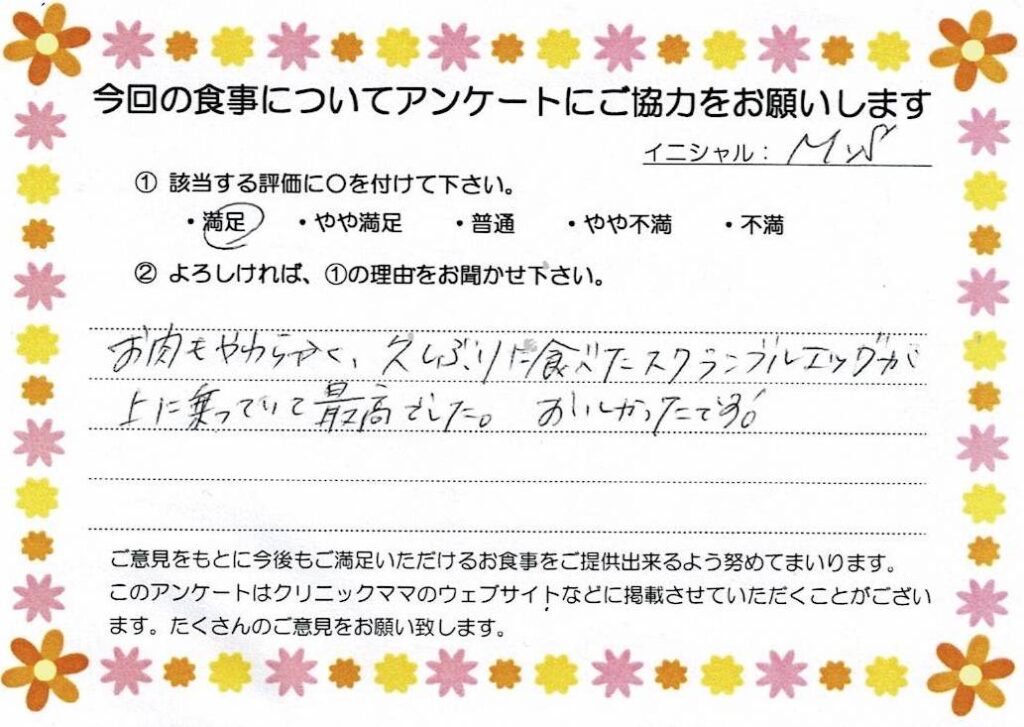 今回の食事についてアンケートにご協力をお願いします
イニシャル：
① 該当する評価に〇を付けて下さい。
・満足 ・やや満足 ・普通 ・やや不満 ・不満
② よろしければ、①の理由をお聞かせ下さい。
お肉もやわらかく、久しぶりに食べたスクランブルエッグが
上に乗っていて最高でした。 おいしかったです。
ご意見をもとに今後もご満足いただけるお食事をご提供出来るよう努めてまいります。
このアンケートはクリニックママのウェブサイトなどに掲載させていただくことがござい
ます。たくさんのご意見をお願い致します。